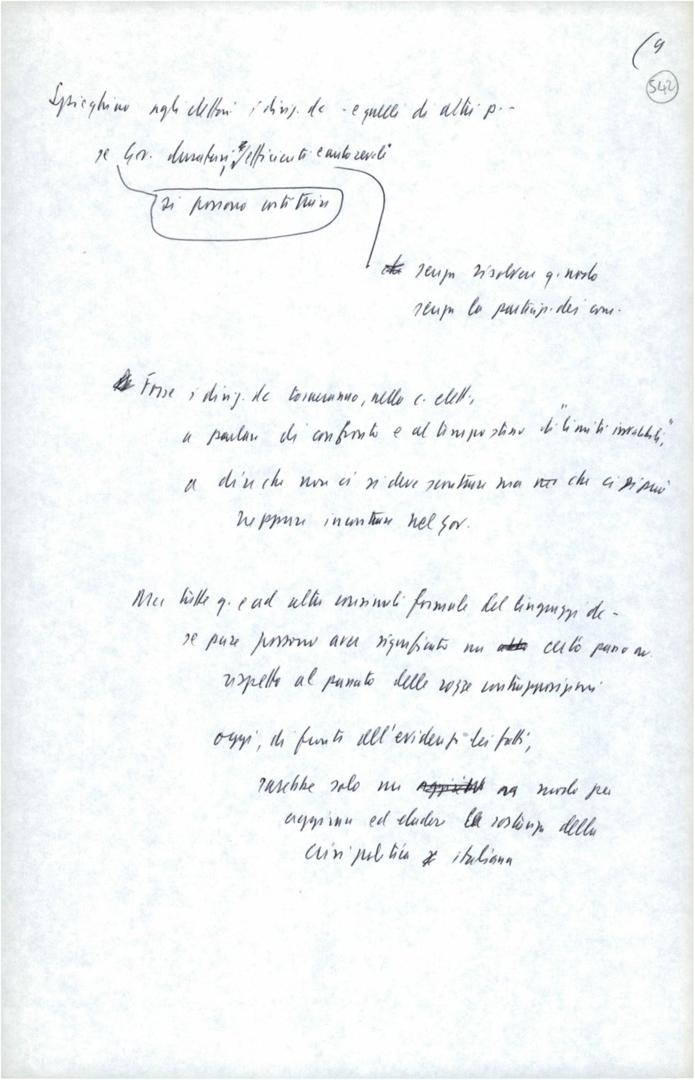 (9
542
Spieghino agli elettori i dirig. dc - e quelli di altri p.-
se Gov. duraturi, e efficienti e autorevoli
si possono costituire
senza risolvere q. nodo
senza la partecip. dei com.
Forse i dirig. dc torneranno, nella c. elett.,
a parlare di confronto e al tempo stesso di "limiti invalicabili",
a dire che non ci si deve scontrare ma che ci si può
neppure incontrare nel gov.
Ma tutte q. ed altre formule del linguaggi dc -
se pure possono aver significato un certo passo av.
rispetto al passato delle rozze contrapposizioni
oggi, di fronte all'evidenza dei fatti,
sarebbe solo un modo per
aggirare ed eludere la sostanza della
crisi politica italiana